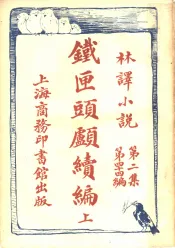 林譯小説
第二集
第四編
鐵匣頭顱續編上
上海商務印書館出版